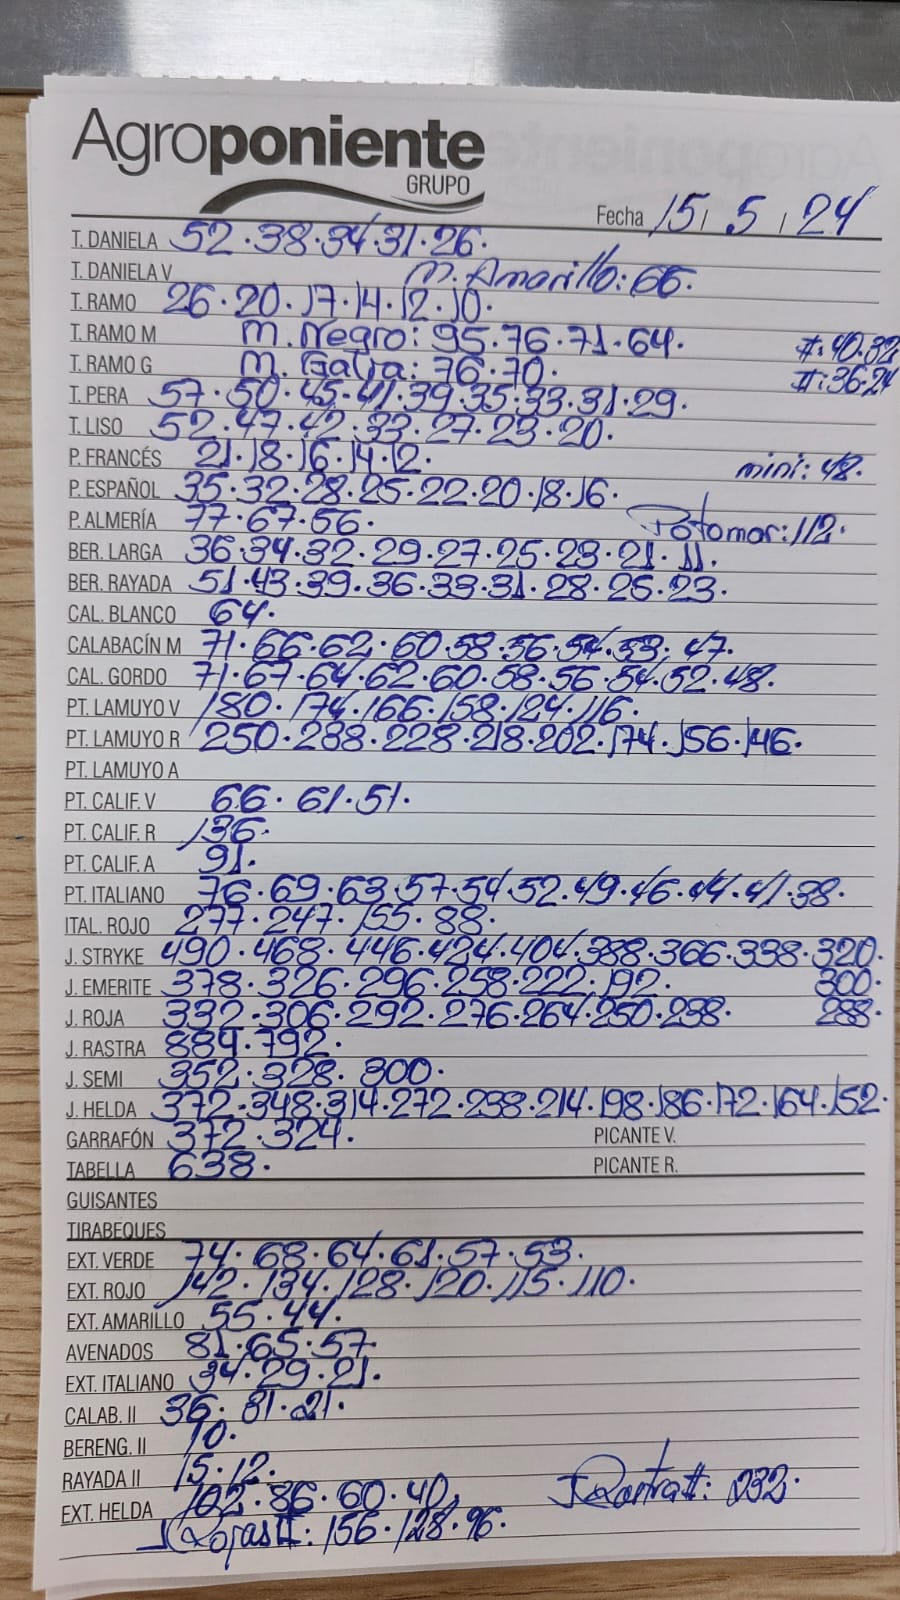 Agroponiente
GRUPO
Fecha 15 / 5 / 24
T. DANELA 52.38.34.31.26.
T. DANIELA V M. Amarillo: 66.
T. RAMO 26.20.17.14.12.10.
T. RAMO M M. Negro: 95.76.71.64. II: 40.32
T. RAMO G M. Galia: 76.70. II: 36.24
T. PERA 57.50.45.41.39.35.33.31.29.
T. LISO 52.47.42.33.27.23.20.
P. FRANCÉS 21.18.16.14.12. mini: 48.
P. ESPAÑOL 35.32.28.25.22.20.18.16.
P. ALMERÍA 77.67.56. Potomac: 112.
BER. LARGA 36.34.32.29.27.25.23.21.11.
BER. RAYADA 51.43.39.36.33.31.28.25.23.
CAL. BLANCO 64.
CALABACÍN M 71.66.62.60.58.56.54.53.47.
CAL. GORDO 71.67.64.62.60.58.56.54.52.48.
PT. LAMUYO V 180.174.166.158.124.116.
PT. LAMUYO R 250.238.228.218.202.174.156.146.
PT. LAMUYO A
PT. CALIF. V 66.61.51.
PT. CALIF. R 136.
PT. CALIF. A 91.
PT. ITALIANO 76.69.63.57.54.52.49.46.44.41.38.
ITAL. ROJO 277.247.155.88.
J. STRYKE 490.468.446.424.404.388.366.338.320.
J. EMERITE 378.326.296.258.222.192. 300.
J. ROJA 332.306.292.276.264.250.238. 288.
J. RASTRA 884.792.
J. SEMI 352.328.300.
J. HELDA 372.348.314.272.238.214.198.186.172.164.152.
GARRAFÓN 372.324. PICANTE V.
TABELLA 638. PICANTE R.
GUISANTES
TIRABEQUES
EXT. VERDE 74.68.64.61.57.53.
EXT. ROJO 142.134.128.120.115.110.
EXT. AMARILLO 55.44.
AVENADOS 81.65.57
EXT. ITALIANO 34.29.21.
CALAB. II 36.31.21.
BERENG. II 10.
RAYADA II 15.12.
EXT. HELDA 102.86.60.40. J Rastra II: 232.
J Rojas II: 156.128.96.